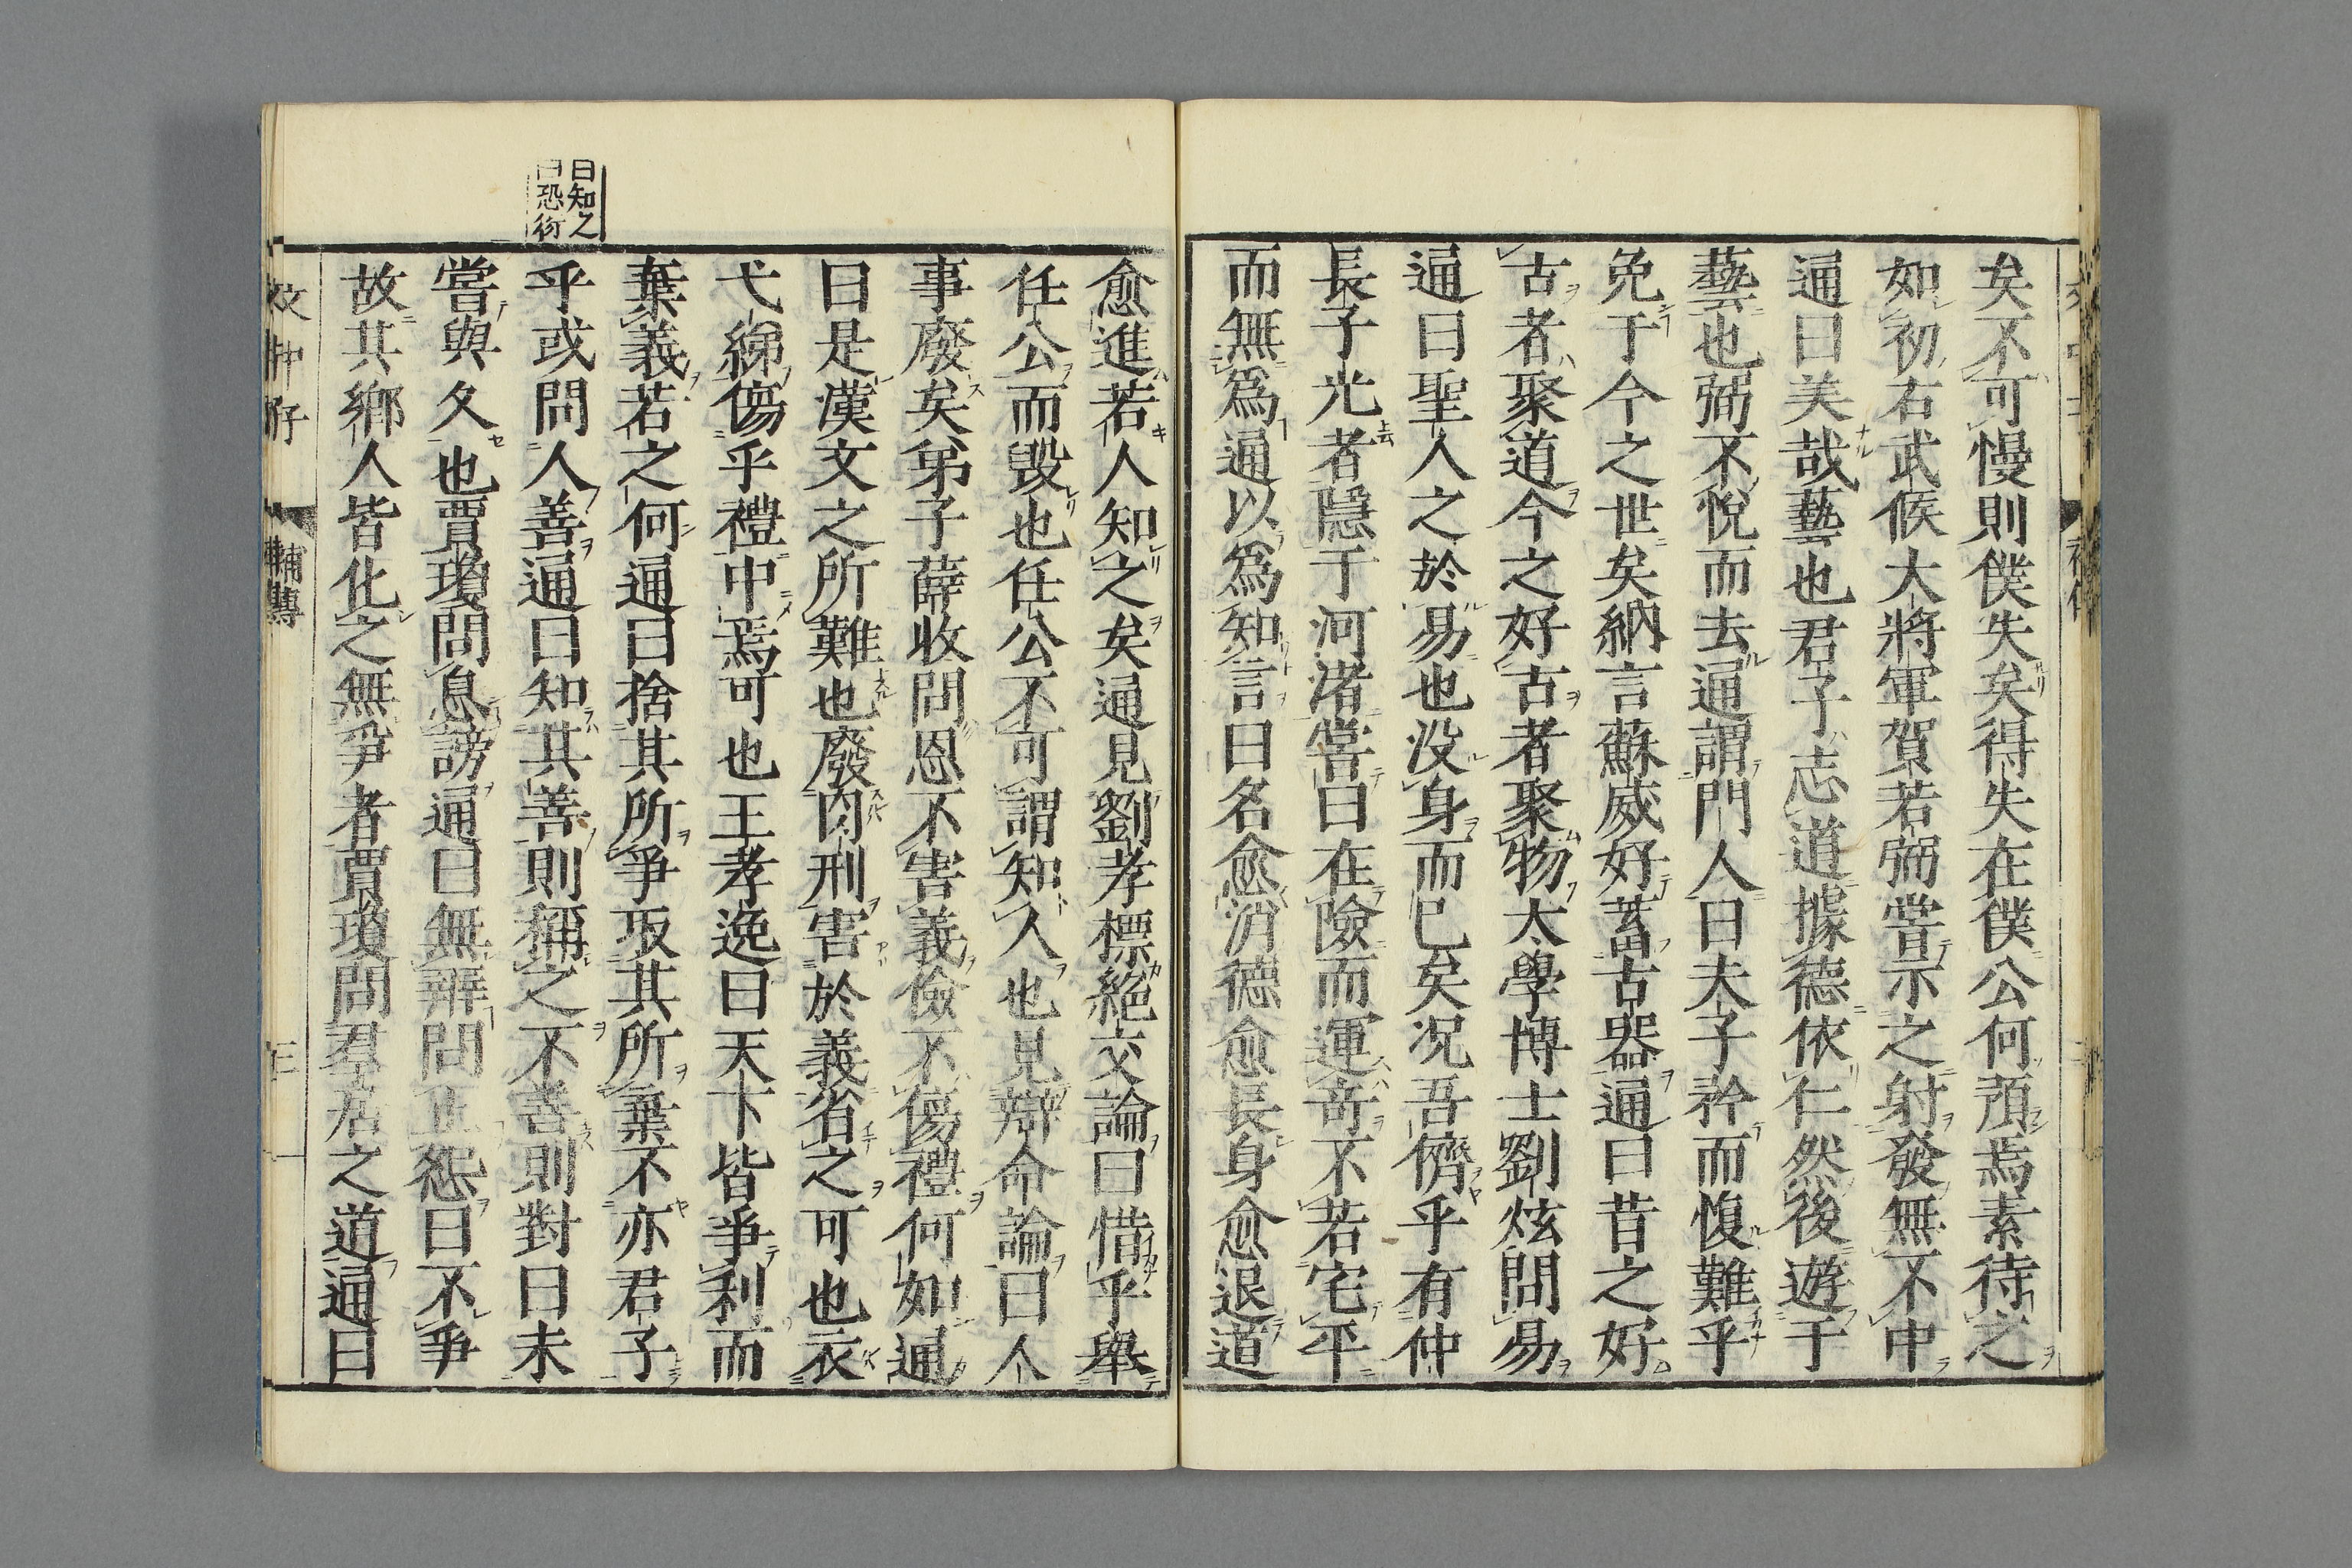 矣不可慢則僕失矣得失在僕公何預焉素待之
如初右武候大將軍賀若弼甞示之射發無不中
通曰美哉藝也君子志道據德依仁然後遊于
藝也弼不悅而去通謂門人曰夫子矜而愎難乎
免于今之世矣納言蘇威好蓄古器通曰昔之好
古者聚道今之好古者聚物太學博士劉炫問易
通曰聖人之於易也没身而已矣况吾儕乎有仲
長子光者隱于河渚甞曰在險而運竒不若宅平
而無爲通以爲知言曰名愈消德愈長身愈退道
愈進若人知之矣通見劉孝標絕交論曰惜乎舉
任公而毀也任公不可謂知人也見辯命論曰人
事廢矣弟子薛收問恩不害義儉不傷禮何如通
曰是漢文之所難也廢肉刑害於義省之可也衣
弋綈傷乎禮中焉可也王孝逸曰天下皆爭利而
棄義若之何通曰捨其所爭取其所棄不亦君子
乎或問人善通曰知其善則稱之不善則對曰未
嘗與久也賈瓊問息謗通曰無辯問止怨曰不爭
故其鄉人皆化之無爭者賈瓊問羣居之道通曰
曰知之
曰恐衍
文中子 補傳 三